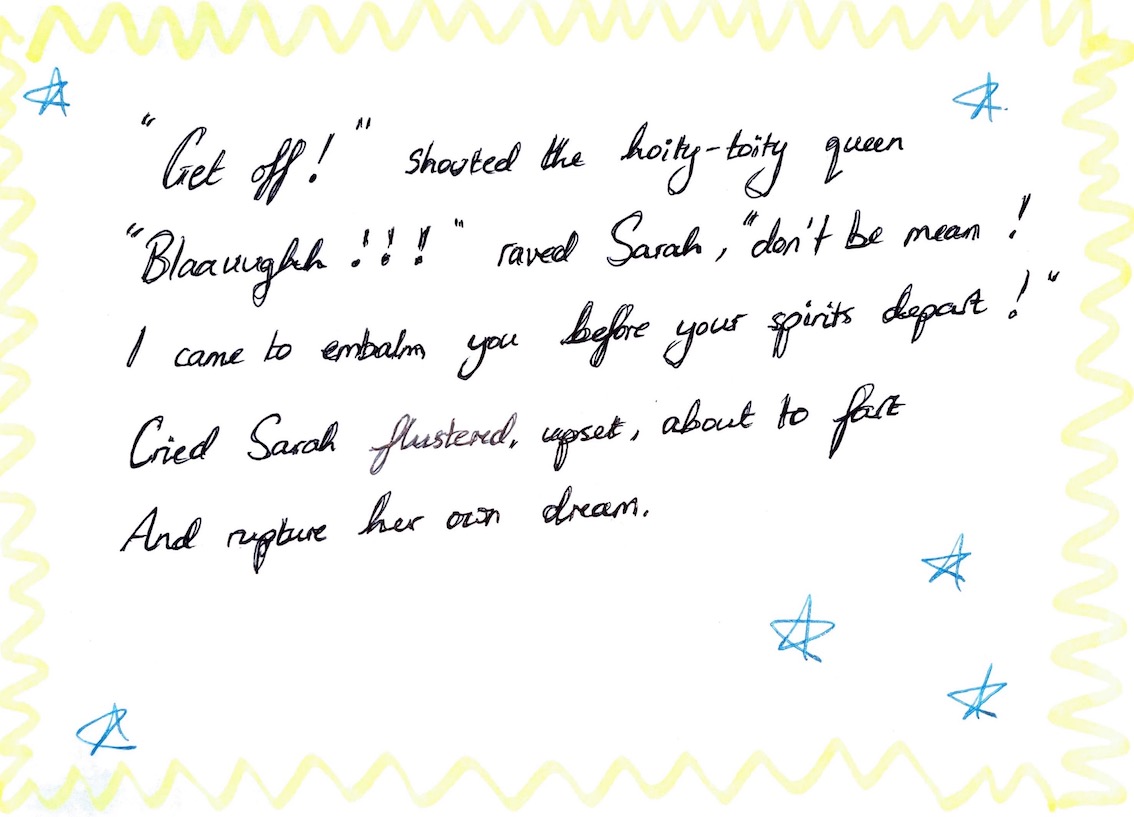 "Get off!" shouted the hoity-toity queen
"Blaauughh!!!" raved Sarah, "don't be mean!
I came to embalm you before your spirits depart!"
Cried Sarah flustered, upset, about to fart
And rupture her own dream.